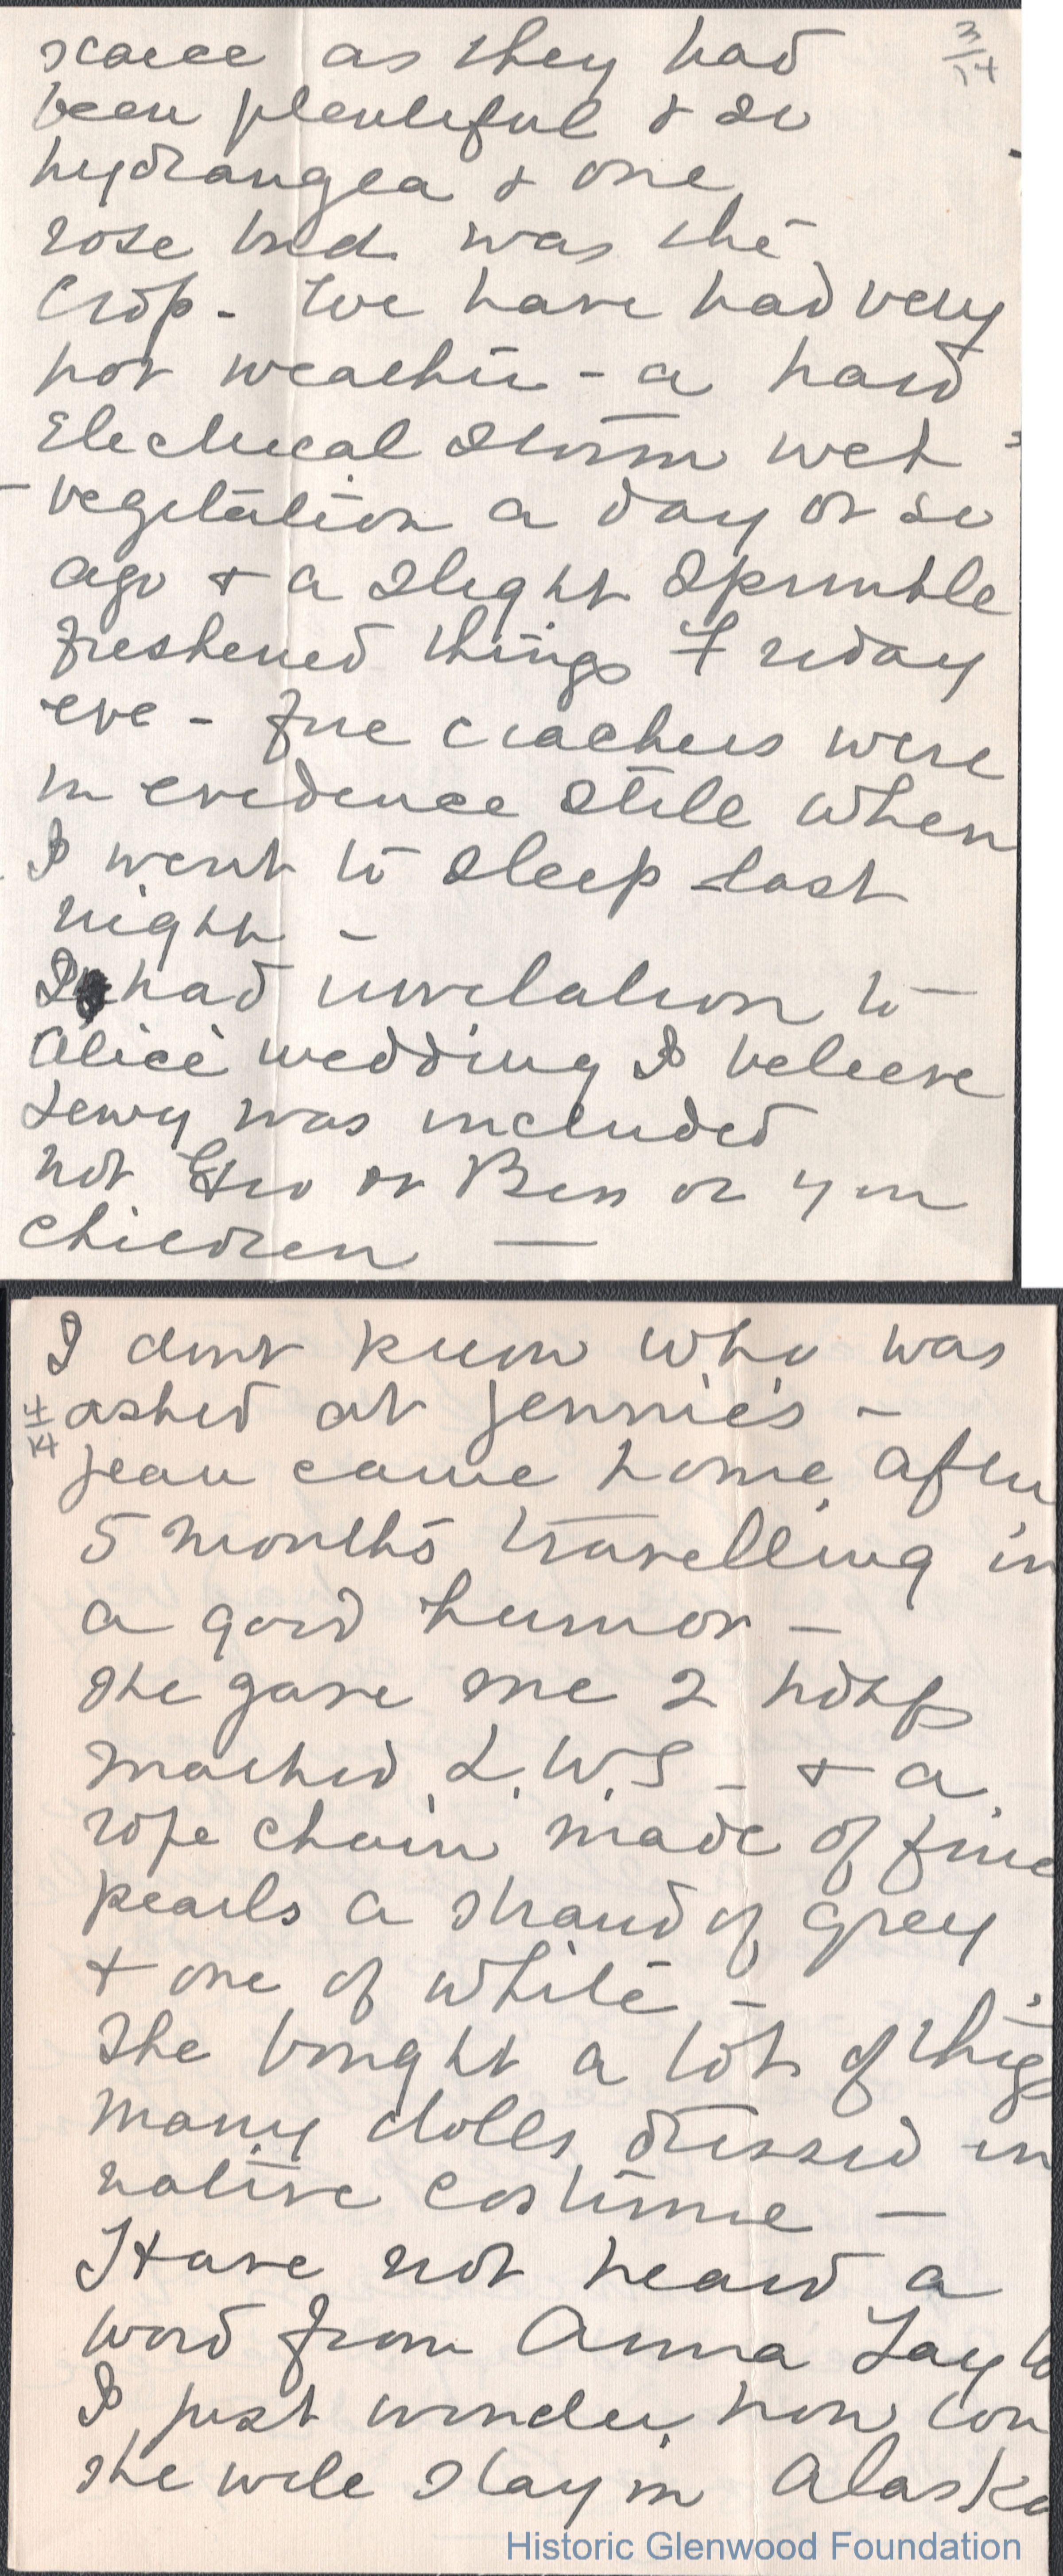 scarce as they had
3/14
been plentiful & so
hydrangea & one
rose bud was the
crop - We have had very
hot weather - a hard
Electrical Storm wet
vegetation a day or so
ago & a slight sprinkle
freshened things Friday
eve - fire crackers were
in evidence still when
I went to sleep last
night -
I had invitation to
Alice wedding I beleeve
Lewy was included
not Geo or Ben or you
children —
I dont know who was
4/14
asked at Jennie's -
Jean came home after
5 months travelling in
a good humor -
she gave me 2 hdkfs
marked L.W.S - & a
rope chain made of fine
pearls a strand of grey
& one of white -
She bought a lot of thigs
many dolls dressed in
native costume —
Have not heard a
word from Anna
I just wonder how lon
she will stay in Alaska
Historic Glenwood Foundation